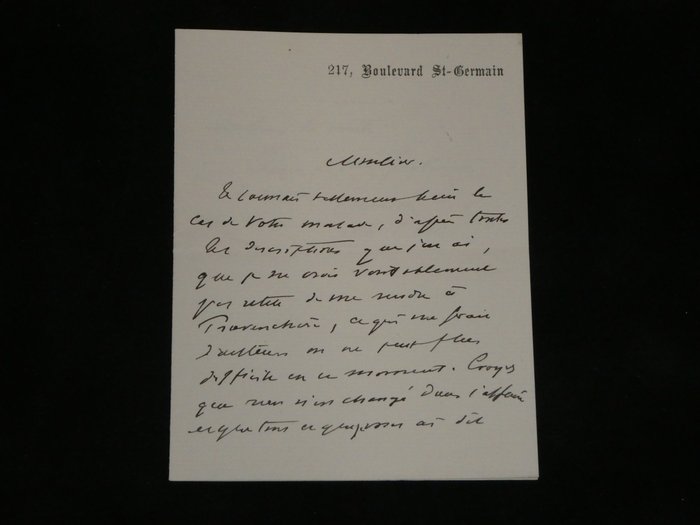 217, Boulevard St-Germain
Monsieur.
Je connais tellement bien le
cas de votre malade, d'après toutes
les descriptions que j'en ai,
que je ne crois véritablement
pas utile de me rendre à
ce qui me serait
d'ailleurs on ne peut plus
difficile en ce moment. Croyez
que rien n'est changé dans l'affaire
et que tous ce que je vous ai dit